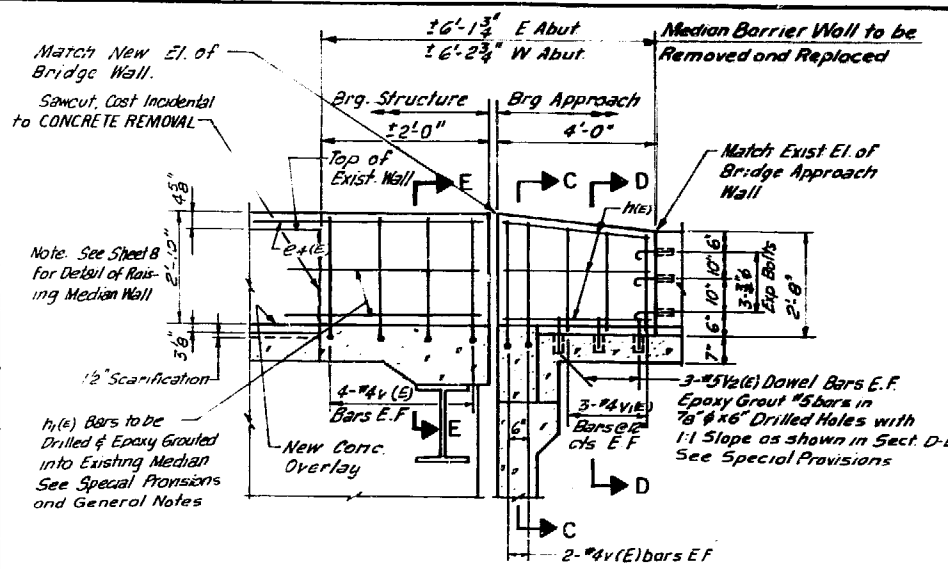 ±6'-1¾" E Abut.
±6'-2¾" W Abut.
Median Barrier Wall to be
Removed and Replaced
Match New El. of
Bridge Wall.
Sawcut, Cost Incidental
to CONCRETE REMOVAL
Brg. Structure
Brg Approach
±2'-0"
4'-0"
Top of
Exist. Wall
E
C
D
Match Exist El. of
Bridge Approach
Wall
h(E)
4⅝"
2'-10"
3⅛"
Note: See Sheet 8
for Detail of Rais-
ing Median Wall
6"
10"
10"
6"
Exp Bolts
2'-8"
7"
1/2" Scarification
4-#4v(E)
Bars E.F
E
h₁(E) Bars to be
Drilled & Epoxy Grouted
into Existing Median
See Special Provisions
and General Notes
New Conc.
Overlay
6"
3-#4v₁(E)
Bars@12
cts E F
3-#5v₂(E) Dowel Bars E.F.
Epoxy Grout #5 bars in
⅞"ϕ x6" Drilled Holes with
1:1 Slope as shown in Sect. D-D
See Special Provisions
D
C
2-#4v(E) bars E F